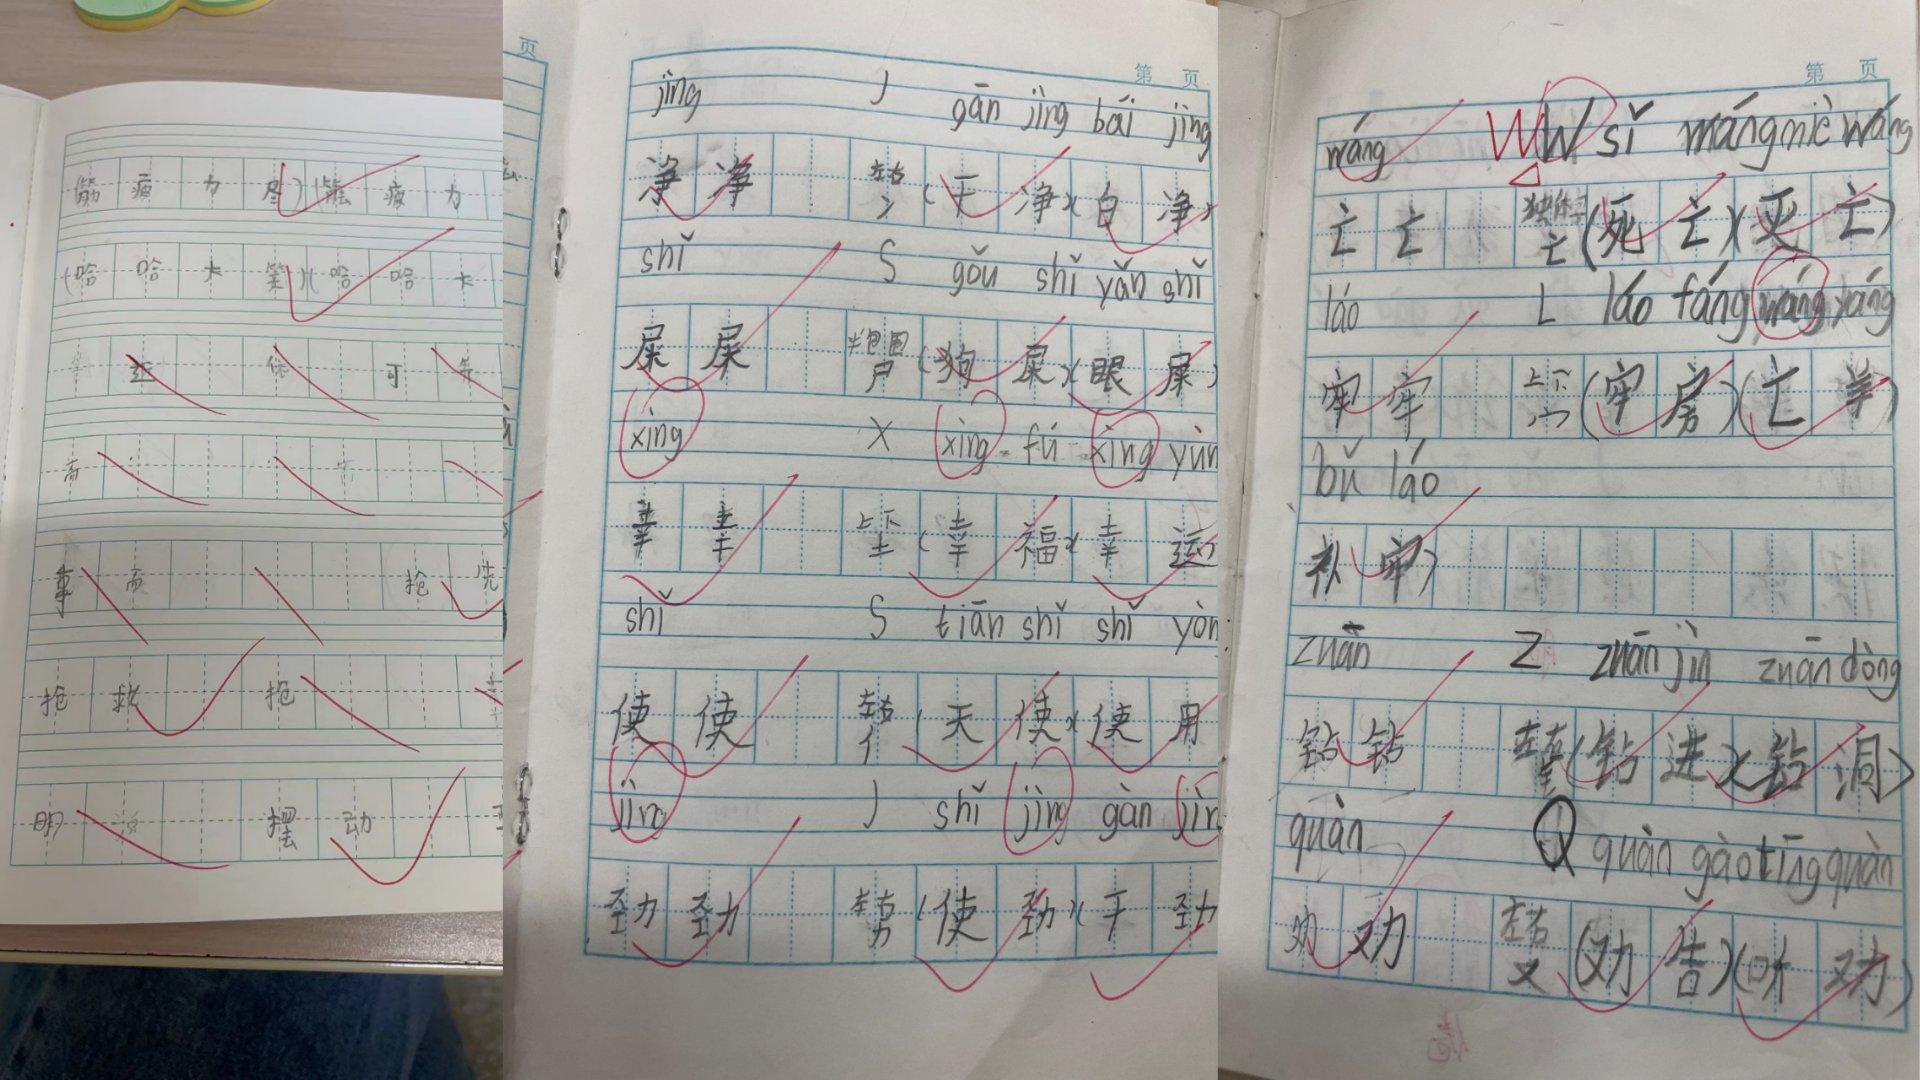 筋疲力尽)(筋疲力
(哈哈大笑)(哈哈大
还 你 可
高
事 高 抢 先
抢救 抢
明 摆动
页
第 页
jìng J gān jìng bái jìng
净净 左右 冫 (干净)(白净)
shǐ S gǒu shǐ yǎn shǐ
屎屎 半包围 尸 (狗屎)(眼屎)
xìng X xìng fú xìng yùn
幸幸 上下 土 (幸福)(幸运
shǐ S tiān shǐ shǐ yòn
使使 左右 亻 (天使)(使用
jìng J shǐ jìng gàn jìn
劲劲 左右 力 (使劲)(干劲
第 页
wáng W W sǐ wáng miè wáng
亡亡 独体字 亡 (死亡)(灭亡)
láo L láo fáng wáng yáng
牢牢 上下 宀 (牢房)(亡羊)
bǔ láo
补牢)
zuān Z zuān jìn zuān dòng
钻钻 左右 钅 (钻进)(钻洞)
quàn Q quàn gào tīng quàn
劝劝 左右 又 (劝告)(听劝)